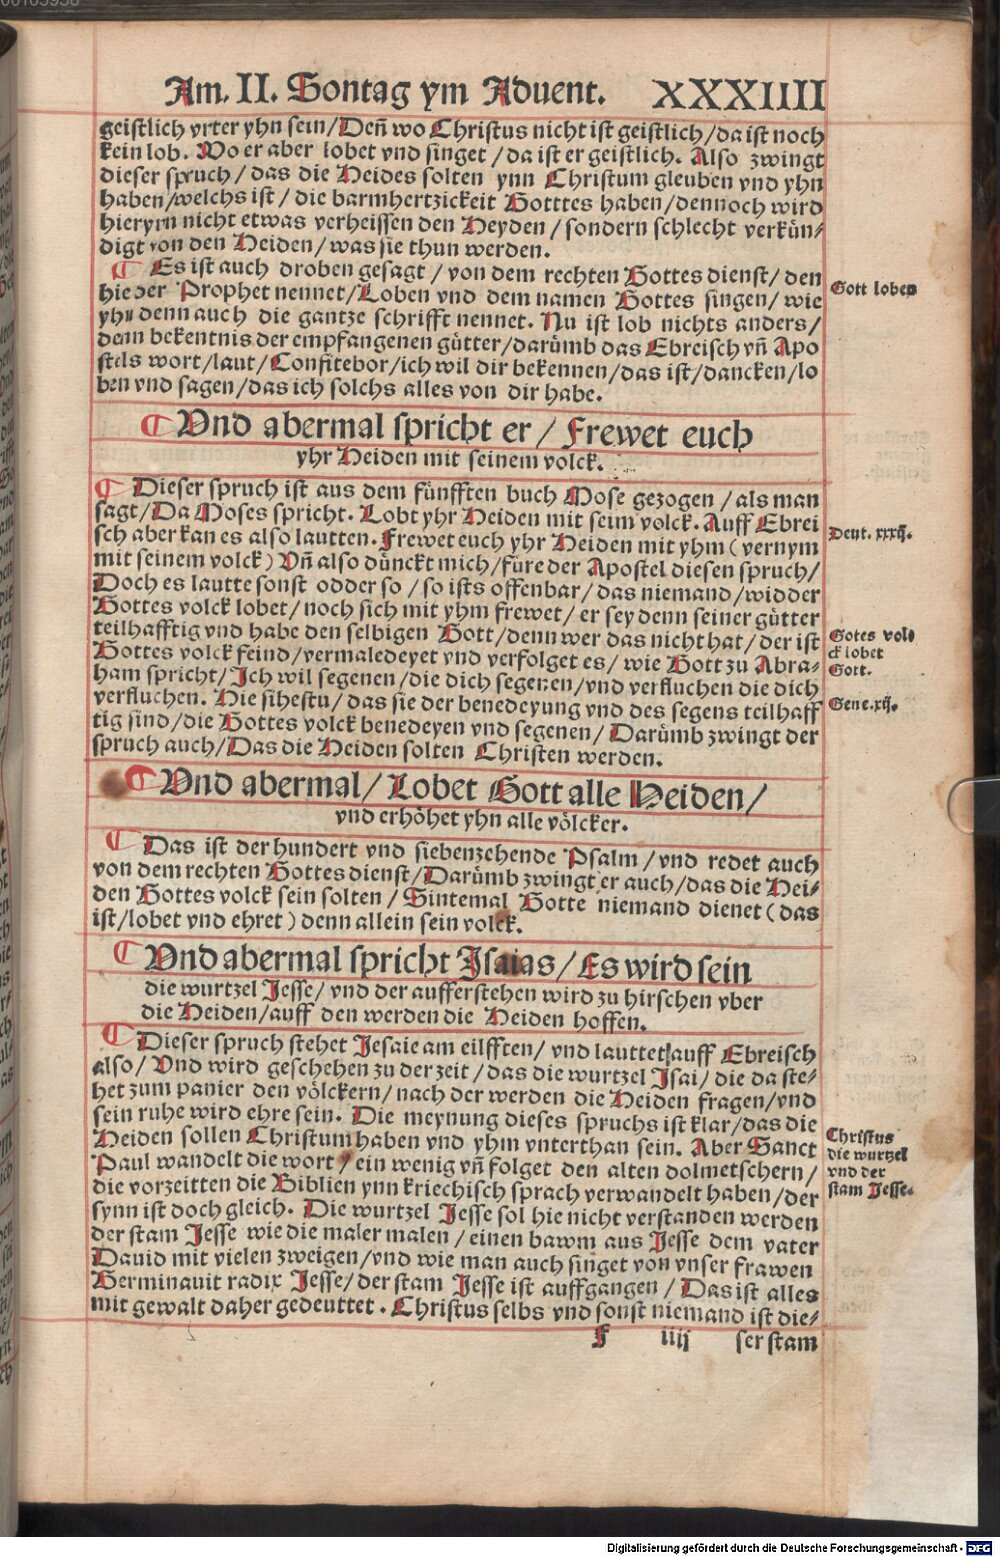 Am. II. Sontag ym Aduent. XXXIIII
geistlich vnter yhn sein/Deñ wo Christus nicht ist geistlich/da ist noch
kein lob. Wo er aber lobet vnd singet/da ist er geistlich. Also zwingt
dieser spruch/das die Heides solten ynn Christum gleuben vnd yhn
haben/welchs ist/die barmhertzickeit Gotttes haben/dennoch wird
hierynn nicht etwas verheissen den Heyden/sondern schlecht verkün-
digt von den Heiden/was sie thun werden.
¶ Es ist auch droben gesagt/von dem rechten Gottes dienst/den
hie der Prophet nennet/Loben vnd dem namen Gottes singen/wie
yhn denn auch die gantze schrifft nennet. Nu ist lob nichts anders/
denn bekentnis der empfangenen gütter/darümb das Ebreisch vñ Apo
stels wort/laut/Confitebor/ich wil dir bekennen/das ist/dancken/lo
ben vnd sagen/das ich solchs alles von dir habe.
Gott loben
¶ Vnd abermal spricht er/Frewet euch
yhr Heiden mit seinem volck.
¶ Dieser spruch ist aus dem fünfften buch Mose gezogen/als man
sagt/Da Moses spricht. Lobt yhr Heiden mit seim volck. Auff Ebrei
sch aber kan es also lautten. Frewet euch yhr Heiden mit yhm (vernym
mit seinem volck) Vñ also dünckt mich/füre der Apostel diesen spruch/
Doch es lautte sonst odder so/so ists offenbar/das niemand/widder
Gottes volck lobet/noch sich mit yhm frewet/er sey denn seiner gütter
teilhafftig vnd habe den selbigen Gott/denn wer das nicht hat/der ist
Gottes volck feind/vermaledeyet vnd verfolget es/wie Gott zu Abra-
ham spricht/Ich wil segenen/die dich segenen/vnd verfluchen die dich
verfluchen. Hie sihestu/das sie der benedeyung vnd des segens teilhaff
tig sind/die Gottes volck benedeyen vnd segenen/Darümb zwingt der
spruch auch/Das die Heiden solten Christen werden.
Deut. xxxij.
Gotes vol-
ck lobet
Gott.
Gene.xij.
¶ Vnd abermal/Lobet Gott alle Heiden/
vnd erhöhet yhn alle völcker.
¶ Das ist der hundert vnd siebenzehende Psalm/vnd redet auch
von dem rechten Gottes dienst/Darümb zwingt er auch/das die Hei-
den Gottes volck sein solten/Sintemal Gotte niemand dienet (das
ist/lobet vnd ehret) denn allein sein volck.
¶ Vnd abermal spricht Isaias/Es wird sein
die wurtzel Jesse/vnd der aufferstehen wird zu hirschen vber
die Heiden/auff den werden die Heiden hoffen.
¶ Dieser spruch stehet Jesaie am eilfften/vnd lauttet auff Ebreisch
also/Vnd wird geschehen zu der zeit/das die wurtzel Isai/die da ste-
het zum panier den völckern/nach der werden die Heiden fragen/vnd
sein ruhe wird ehre sein. Die meynung dieses spruchs ist klar/das die
Heiden sollen Christum haben vnd yhm vnterthan sein. Aber Sanct
Paul wandelt die wort/ein wenig vñ folget den alten dolmetschern/
die vorzeitten die Biblien ynn kriechisch sprach verwandelt haben/der
synn ist doch gleich. Die wurtzel Jesse sol hie nicht verstanden werden
der stam Jesse wie die maler malen/einen bawm aus Jesse dem vater
Dauid mit vielen zweigen/vnd wie man auch singet von vnser frawen
Germinauit radix Jesse/der stam Jesse ist auffgangen/Das ist alles
mit gewalt daher gedeuttet. Christus selbs vnd sonst niemand ist die-
Christus
die wurtzel
vnd der
stam Jesse.
F iiij ser stam
Digitalisierung gefördert durch die Deutsche Forschungsgemeinschaft - DFG